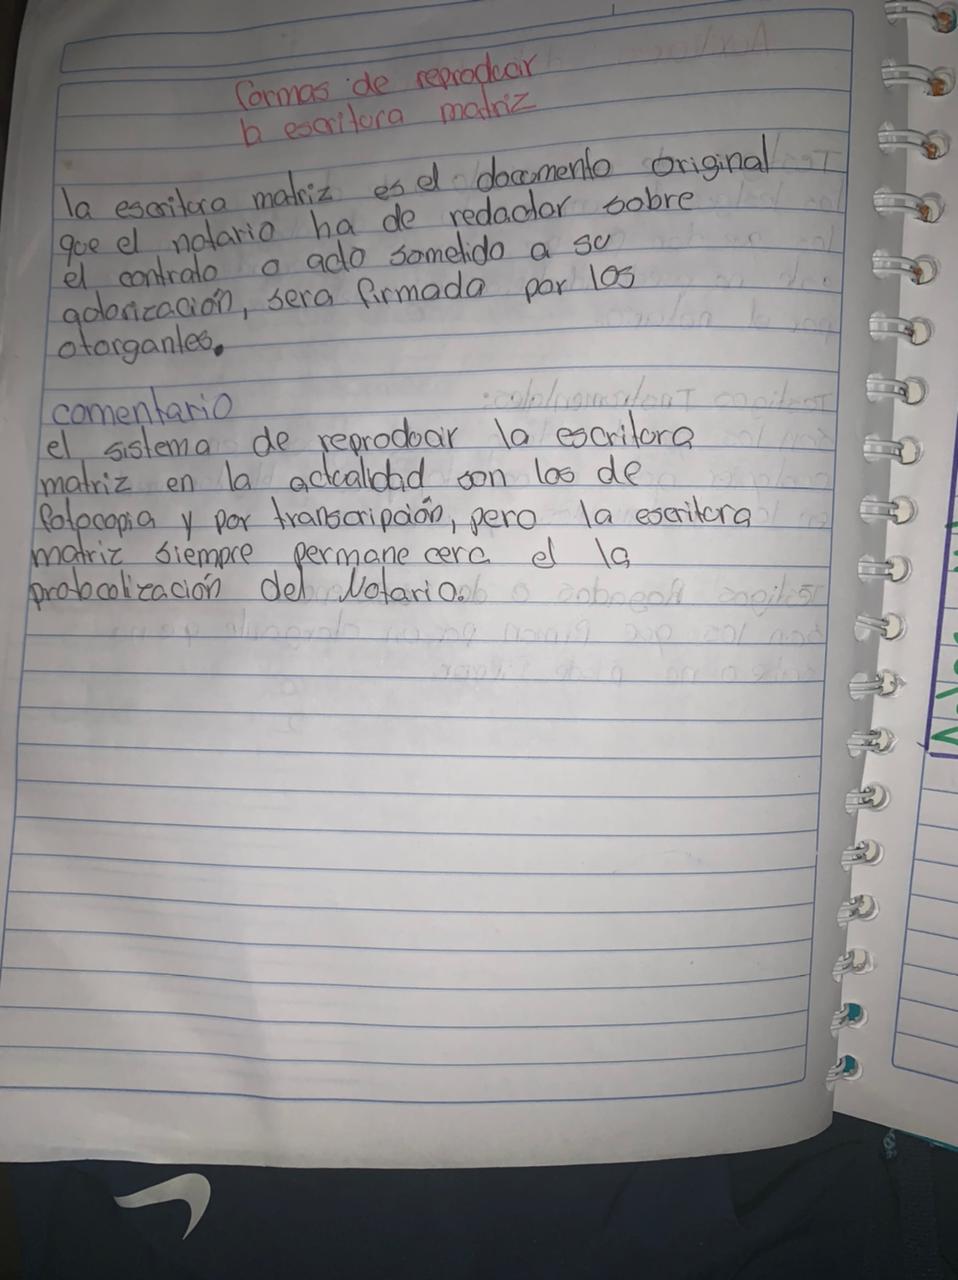 formas de reproducir
la escritura matriz
la escritura matriz es el documento original
que el notario ha de redactar sobre
el contrato o acto sometido a su
autorización, sera firmada por los
otorgantes.
comentario
el sistema de reproducir la escritura
matriz en la actualidad son los de
fotocopia y por transcripción, pero la escritura
matriz siempre permanecera el la
protocolización del Notario.